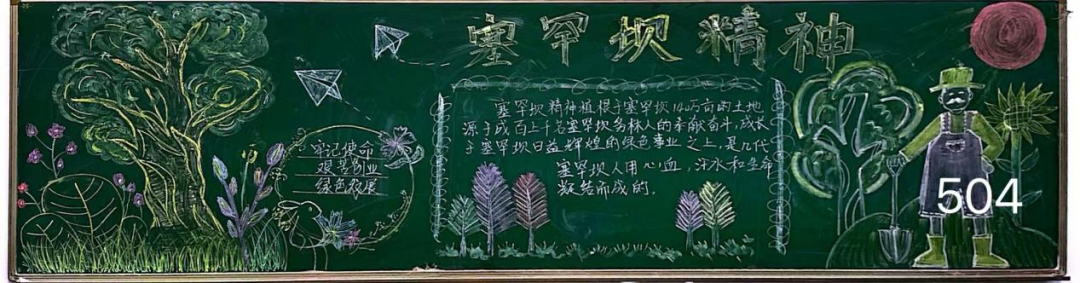 塞罕坝精神
牢记使命
艰苦创业
绿色发展
塞罕坝精神植根于塞罕坝140万亩的土地
源于成百上千名塞罕坝务林人的奉献奋斗,成长
于塞罕坝日益辉煌的绿色事业之上,是几代
塞罕坝人用心血,汗水和生命
凝结而成的.
504